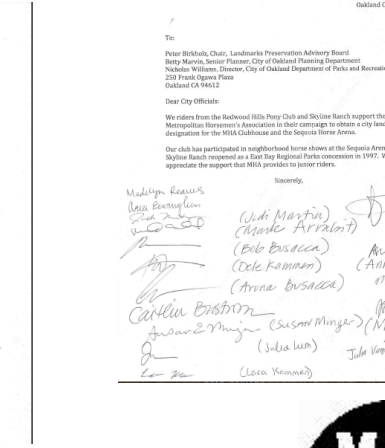 Oakland C
To:
Peter Birkholz, Chair, Landmarks Preservation Advisory Board
Betty Marvin, Senior Planner, City of Oakland Planning Department
Nicholas Williams, Director, City of Oakland Department of Parks and Recreatio
250 Frank Ogawa Plaza
Oakland CA 94612
Dear City Officials:
We riders from the Redwood Hills Pony Club and Skyline Ranch support the
Metropolitan Horsemen's Association in their campaign to obtain a city land
designation for the MHA Clubhouse and the Sequoia Horse Arena.
Our club has participated in neighborhood horse shows at the Sequoia Aren
Skyline Ranch reopened as a East Bay Regional Parks concession in 1997. W
appreciate the support that MHA provides to junior riders.
Sincerely,
Madelyn Reaves
(Judi Martin)
(Mark Arrabit)
(Bob Busacca)
(Dete Kammen)
(Arona Busacca)
Caitlin Bostrom
Susan E Minger (Susan Minger)
(Julea Lum)
(Lara Kammen)